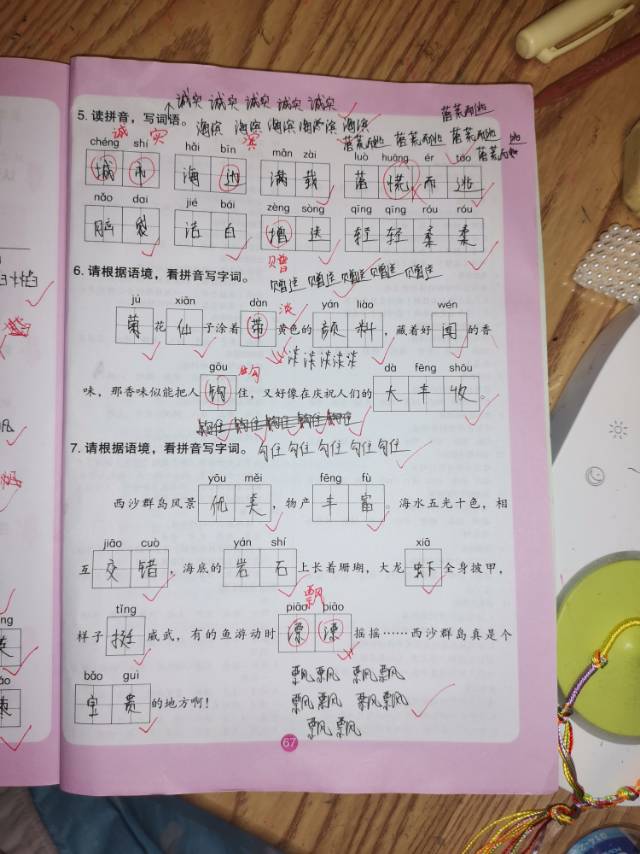 诚实 诚实 诚实 诚实 诚实
5. 读拼音，写词语。 海滨 海滨 海滨 海滨 海滨
诚 实 滨
chéng shí hǎi bīn mǎn zài luò huāng ér táo
城 市 海 满 载 落 慌 而 逃
nǎo dai jié bái zèng sòng qīng qīng róu róu
脑 袋 洁 白 增 送 轻 轻 柔 柔
赠
6. 请根据语境，看拼音写字词。 赠送 赠送 赠送 赠送 赠送
jú xiān dàn yán liào wén
淡
菊花仙子涂着带黄色的颜料，藏着好闻的香
淡 淡 淡 淡 淡
gōu dà fēng shōu
勾
味，那香味似能把人钩住，又好像在庆祝人们的大丰收。
钩住 钩住 钩住 钩住 钩住
7. 请根据语境，看拼音写字词。 勾住 勾住 勾住 勾住 勾住
yōu měi fēng fù
西沙群岛风景优美，物产丰富。海水五光十色，相
jiāo cuò yán shí xiā
互交错，海底的岩石上长着珊瑚，大龙虾全身披甲，
飘
tǐng piāo piāo
样子挺威武，有的鱼游动时漂漂摇摇……西沙群岛真是个
bǎo guì
宝贵的地方啊！
飘飘 飘飘
飘飘 飘飘
飘飘
67